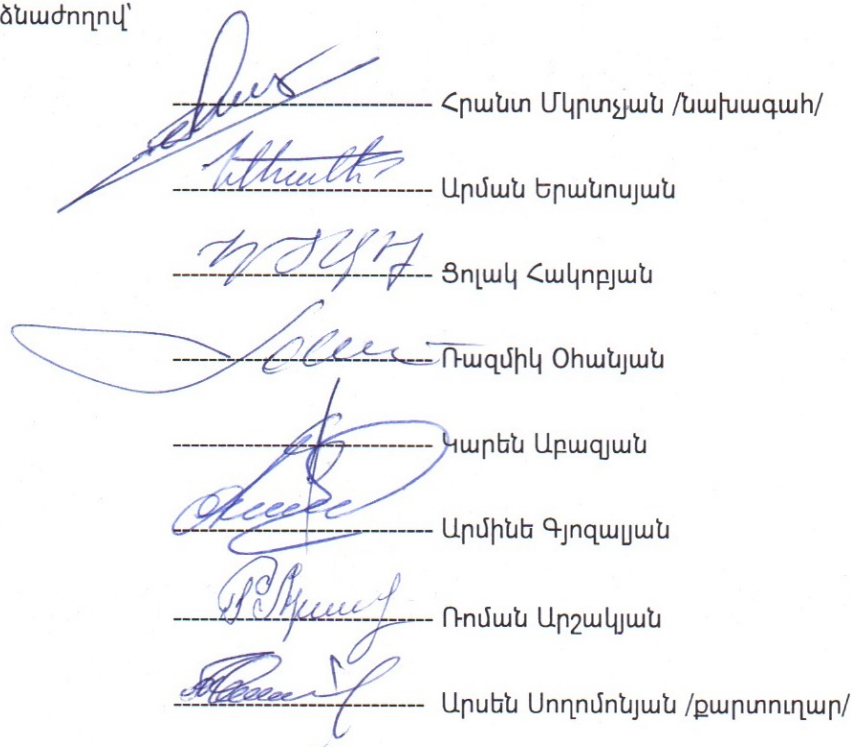 ձնաժողով՝
Հրանտ Մկրտչյան /նախագահ/
Արման Երանոսյան
Ցոլակ Հակոբյան
Ռազմիկ Օհանյան
Կարեն Աբազյան
Արմինե Գյոզալյան
Ռոման Արշակյան
Արսեն Սողոմոնյան /քարտուղար/